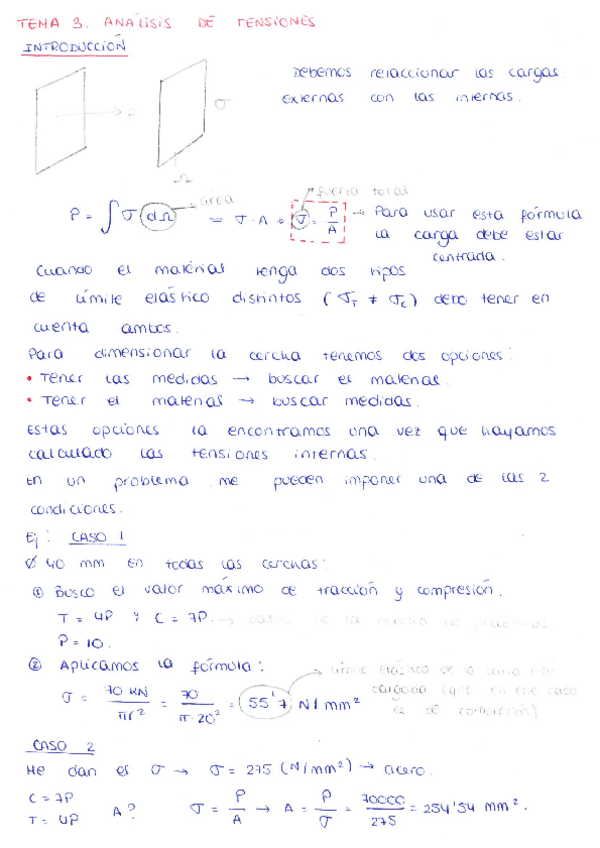 TEMA 3. ANÁLISIS DE TENSIONES
INTRODUCCIÓN
Debemos relaccionar las cargas
externas con las internas.
P
σ
Ω
área
fuerza total
P = ∫ σ dΩ = σ · A → σ = P/A → Para usar esta fórmula
la carga debe estar
centrada.
Cuando el material tenga dos tipos
de límite elástico distintos (σT ≠ σC) debo tener en
cuenta ambos.
Para dimensionar la cercha tenemos dos opciones:
• Tener las medidas → buscar el material.
• Tener el material → buscar medidas.
Estas opciones la encontramos una vez que hayamos
calculado las tensiones internas.
En un problema me pueden imponer una de las 2
condiciones.
Ej: CASO 1
Ø 40 mm en todas las cerchas:
① Busco el valor máximo de tracción y compresión.
T = 4P y C = 7P → de la cercha de prácticas.
P = 10.
② Aplicamos la fórmula: → límite elástico de la barra más
cargada (que en este caso
es de compresión)
σ = 70 KN/πr² = 70/π·20² = 55'7 N/mm²
CASO 2
Me dan el σ → σ = 275 (N/mm²) → acero.
C = 7P
T = 4P A? σ = P/A → A = P/σ = 70000/275 = 254'54 mm².